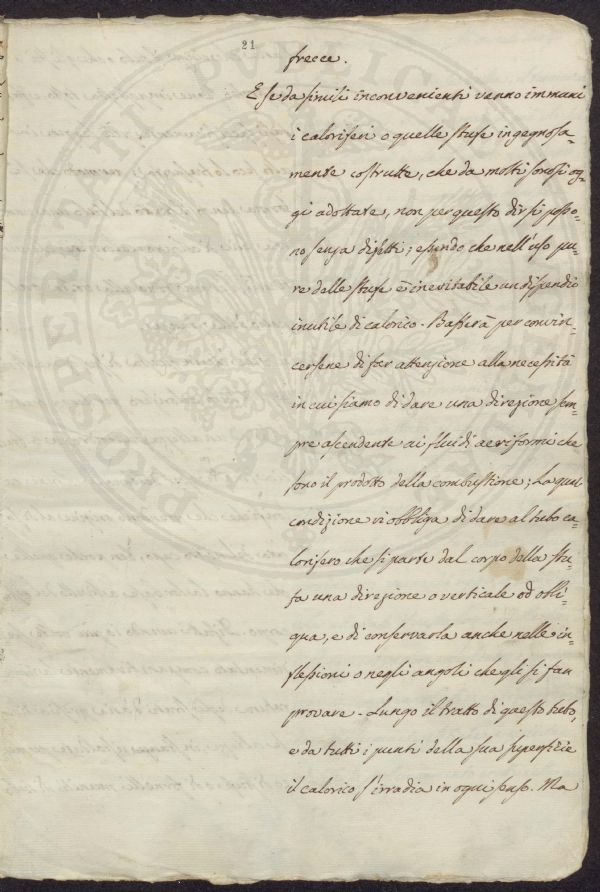 21
frecce.
E se da simili inconvenienti vanno immuni
i caloriferi o quelle stufe ingegnosa-
mente costrutte, che da molti sonosi og-
gi adottate, non per questo dir si posso-
no senza difetti; essendo che nell'uso pu-
re delle stufe è inevitabile un dispendio
inutile di calorico. Basterà per convin-
cersene di far attenzione alla necessità
in cui siamo di dare una direzione sem-
pre ascendente ai fluidi aeriformi che
sono il prodotto della combustione; La qual
condizione vi obbliga di dare al tubo ca-
lorifero che si parte dal corpo della stu-
fa una direzione o verticale od obbli-
qua, e di conservarla anche nelle in-
flessioni o negli angoli che gli si fan
provare. Lungo il tratto di questo tubo,
e da tutti i punti della sua superfizie
il calorico s'irradia in ogni senso. Ma